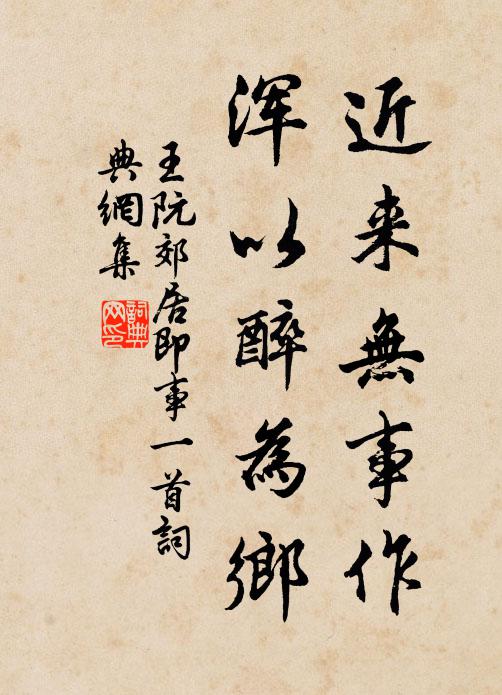 近来無事作
渾以醉為鄉
王阮郊居即事一首詞
典網集
詞典网印